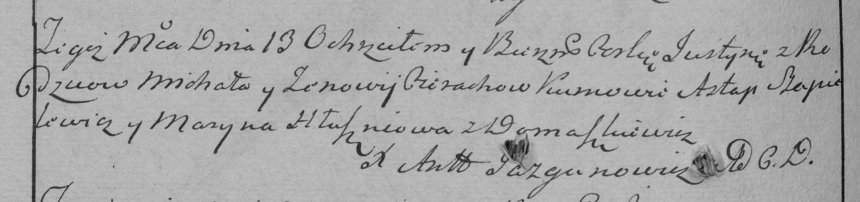 Tegoż Mca Dnia 13 Ochrzciłem y Bierzm Corkę Justynę z Ro
dzicow Michała y Zenowij Cierachow Kumowie Astap Szapie
lewicz y Maryna Hłuszniowa z Domaszkiewicz
X Antt Jazgunowicz P. C. D.